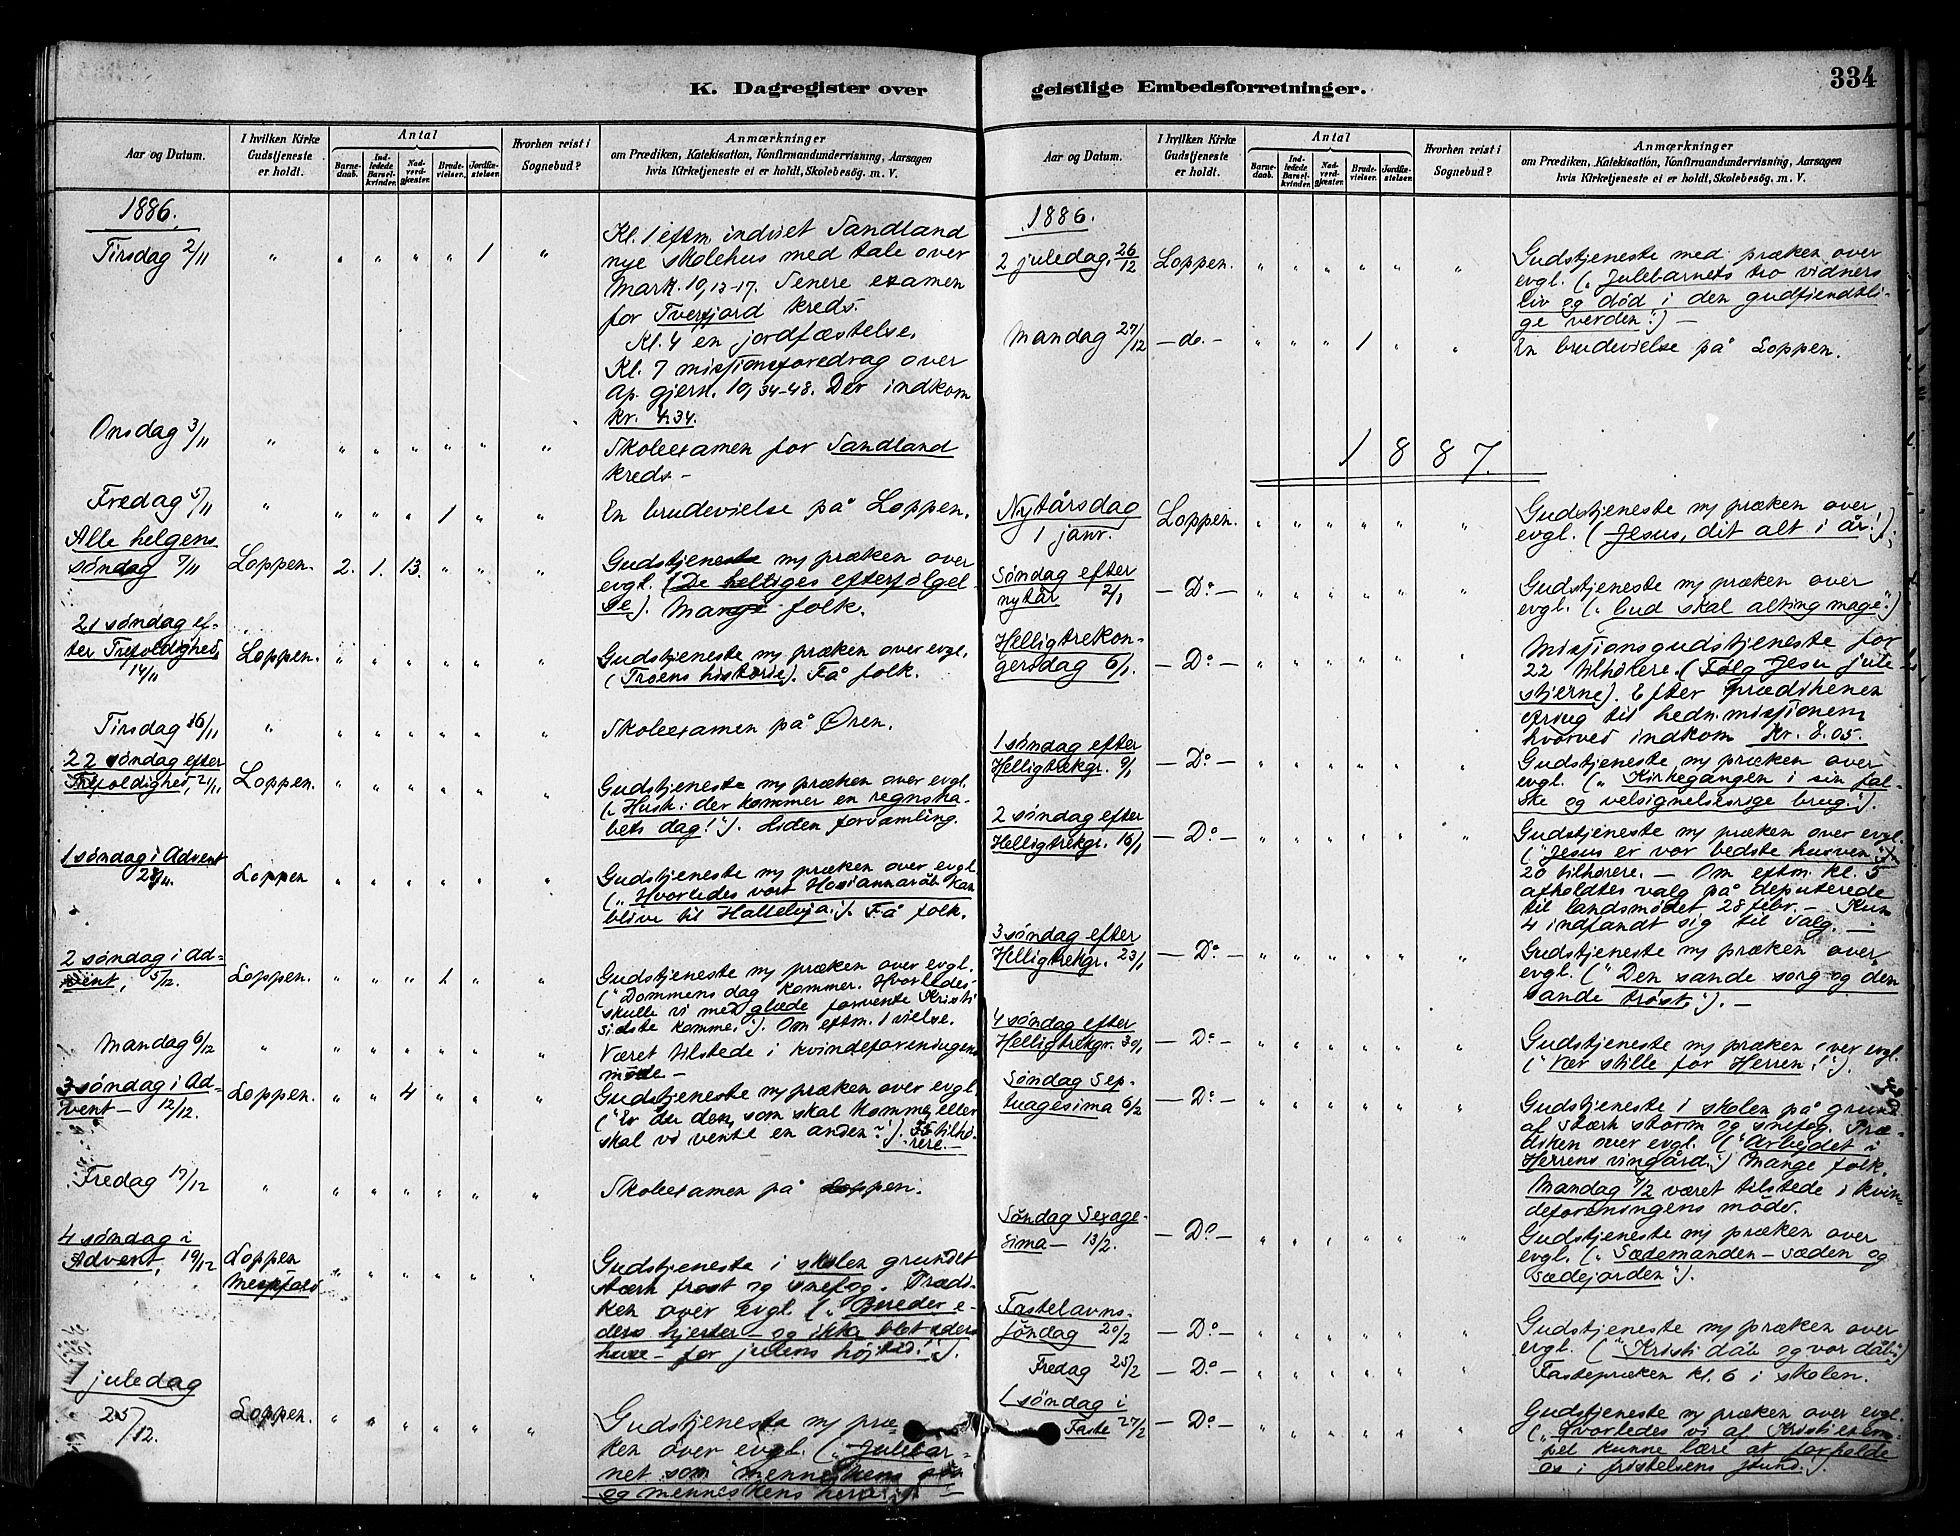 334
K. Dagregister over
Aar og Datum.
I hvilken Kirke
Gudstjeneste
er holdt.
Antal
Barne-
daab.
Ind-
ledede
Barsel-
kvinder.
Nad-
verd-
gjæster.
Brude-
vielser.
Jordfæ-
stelser.
Hvorhen reist i
Sognebud?
Anmærkninger
om Prædiken, Katekisation, Konfirmandundervisning, Aarsagen
hvis Kirketjeneste ei er holdt, Skolebesøg. m. V.
1886.
Tirsdag 2/11 " " " " " 1 "
Kl. 1 eftm. indviet Sandland
nye skolehus med tale over
Mark. 10, 13-17. Senere examen
for Tverfjord kreds.
Kl. 4 en jordfæstelse.
Kl. 7 missjonsforedrag over
Ap. gjern. 10, 34-48. Der indkom
kr. 4.34.
Onsdag 3/11 " " " " " " "
Skoleexamen for Sandland
kreds -
Fredag 5/11 " " " " 1 " "
En brudevielse på Loppen.
Alle helgens
søndag 7/11 Loppen. 2. 1. 13. " " "
Gudstjeneste m/ præken over
evgl. (De helliges efterfølgel-
se). Mange folk.
21 søndag ef-
ter Trefoldighed,
14/11 Loppen. " " " " " "
Gudstjeneste m/ præken over evgl.
(Troens historie). Få folk.
Tirsdag 16/11 " " " " " " "
Skoleexamen på Øren.
22 søndag efter
Trefoldighed, 21/11 Loppen. " " " " " "
Gudstjeneste m/ præken over evgl.
("Husk: der kommer en regnska-
bets dag!"). Liden forsamling.
1 søndag i Advent
28/11. Loppen " " " " " "
Gudstjeneste m/ præken over evgl.
("Hvorledes vort Hosiannaråb kan
blive til Halleluja."). Få folk.
2 søndag i Ad-
vent, 5/12. Loppen. " " " 1 " "
Gudstjeneste m/ præken over evgl.
("Dommens dag kommer. Hvorledes
skulle vi med glæde forvente Kristi
sidste komme."). Om eftm. 1 vielse.
Mandag 6/12 " " " " " " "
Været tilstede i kvindeforeningens
møde -
3 søndag i Ad-
vent - 12/12. Loppen. " " 4 " " "
Gudstjeneste m/ præken over evgl.
("Er du den, som skal komme, eller
skal vi vente en anden?"). 35 tilhø-
rere. -
Fredag 17/12 " " " " " " "
Skoleexamen på Loppen.
4 søndag i
Advent, 19/12 Loppen
" " " " " "
Gudstjeneste i skolen grundet
stærk frost og snefog. Prædi-
ken over evgl. ("Bereder e-
ders hjerter - og ikke blot eders
huse - for julens højtid!").
1 juledag
25/12. Loppen. " " " " " "
Gudstjeneste m/ præ-
ken over evgl. ("Julebar-
net som menneskens søn
og menneskens herre")
geistlige Embedsforretninger.
Aar og Datum.
I hvilken Kirke
Gudstjeneste
er holdt.
Antal
Barne-
daab.
Ind-
ledede
Barsel-
kvinder.
Nad-
verd-
gjæster.
Brude-
vielser.
Jordfæ-
stelser.
Hvorhen reist i
Sognebud?
Anmærkninger
om Prædiken, Katekisation, Konfirmandundervisning, Aarsagen
hvis Kirketjeneste ei er holdt, Skolebesøg. m. V.
1886.
2 juledag, 26/12 Loppen. " " " " " "
Gudstjeneste med præken over
evgl. ("Julebarnets tro vidners
liv og død i den gudfjendtli-
ge verden".) -
Mandag 27/12 - do. - " " " 1 " "
En brudevielse på Loppen.
1887.
Nytårsdag
1 janr. Loppen. " " " " " "
Gudstjeneste m/ præken over
evgl. (Jesus, dit alt i år!");
Søndag efter
nytår 2/1 - Do - " " " " " "
Gudstjeneste m/ præken over
evgl. ("Gud skal alting mage".)
Helligtrekon-
gersdag 6/1. - Do - " " " " " "
Missjonsgudstjeneste for
22 tilhørere. (Følg Jesu jule-
stjerne). Efter prædikenen
ofring til hedn. missjonen,
hvorved indkom Kr. 8.05.
1 søndag efter
Helligtrekgr. 9/1 - Do - " " " " " "
Gudstjeneste m/ præken over
evgl. ("Kirkegangen i sin fal-
ske og velsignelsesrige brug.").
2 søndag efter
Helligtrekgr. 16/1 - Do - " " " " " "
Gudstjeneste m/ præken over evgl.
("Jesus er vor bedste husven".)
20 tilhørere. - Om eftm. kl. 5
afholdtes valg på deputerede
til landsmødet 28 febr. - Kun
4 indfandt sig til valg. -
3 søndag efter
Helligtrekgr. 23/1 - Do - " " " " " "
Gudstjeneste m/ præken over
evgl. ("Den sande sorg og den
sande trøst."). -
4 søndag efter
Helligtrekgr. 30/1 - Do - " " " " " "
Gudstjeneste m/ præken over evgl.
("Vær stille for Herren!").
Søndag Sep-
tuagesima 6/2 - Do - " " " " " "
Gudstjeneste i skolen på grund
af stærk storm og snefog. Præ-
diken over evgl. ("Arbejdet i
Herrens vingård.") Mange folk.
Mandag 7/2 været tilstede i kvin-
deforeningens møde.
Søndag Sexage-
sima - 13/2. - Do - " " " " " "
Gudstjeneste m/ præken over
evgl. ("Sædemanden - sæden og
sædejorden").
Fastelavns-
søndag 20/2 - Do - " " " " " "
Gudstjeneste m/ præken over
evgl. ("Kristi dåb og vor dåb")
Fredag 25/2 - Do - " " " " " "
Fastepræken kl. 6 i skolen.
1 søndag i
Faste 27/2 - Do - " " " " " "
Gudstjeneste m/ præken over evgl.
("Hvorledes vi af Kristi exem-
pel kunne lære at forholde
os i fristelsens stund.").